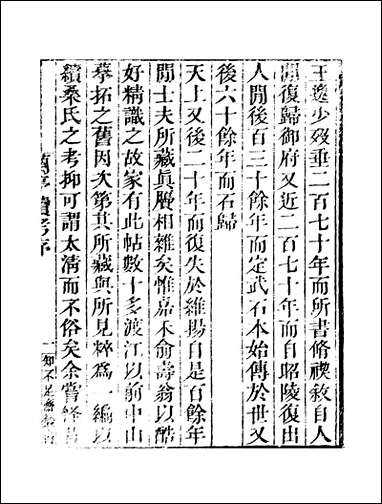 王逸少歿垂二百七十年而所書脩禊敘自人
閒復歸御府又近二百七十年而自昭陵復出
人閒後百三十餘年而定武石本始傳於世又
後六十餘年而石歸
天上又後二十年而復失於維揚自是百餘年
閒士夫所藏眞贗相雜矣惟嘉禾俞壽翁以酷
好精識之故家有此帖數十多渡江以前中山
摹拓之舊因次第其所藏與所見粹爲一編以
續桑氏之考抑可謂太清而不俗矣余嘗
蘭亭續考序
一
知不足齋叢書